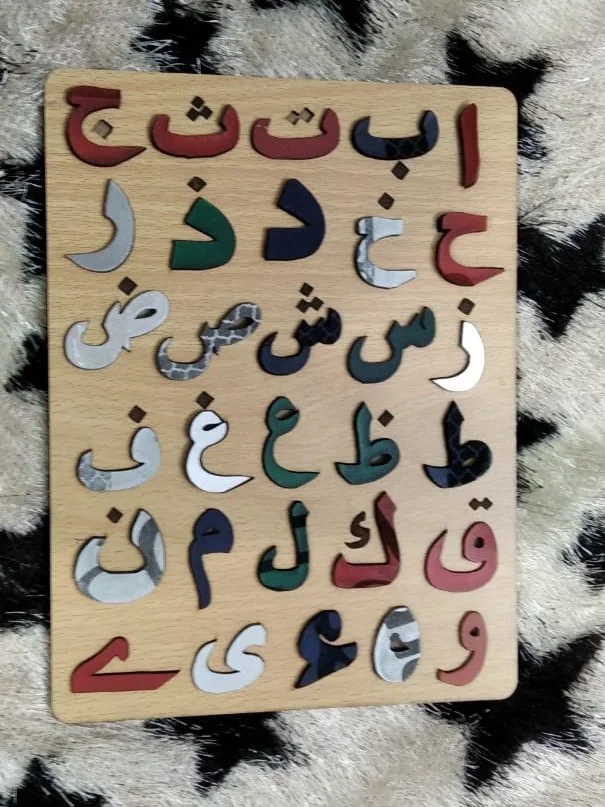 ا ب ت ث ج
ح خ د ذ ر
ز س ش ص ض
ط ظ ع غ ف
ق ك ل م ن
و ه ء ی ے